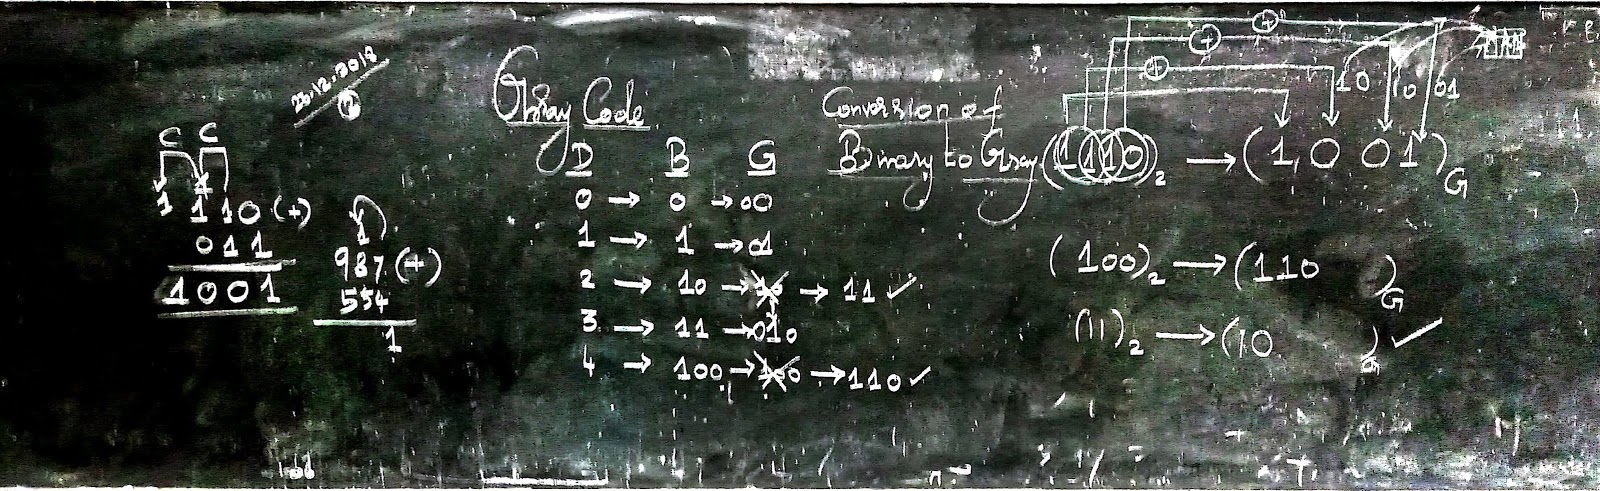 23.12.2018
2
C C
1 1
110 (+)
011
1001
1
987 (+)
554
1
Gray Code
D B G
0 → 0 → 00
1 → 1 → 01
2 → 10 → 10 → 11 ✓
3 → 11 → 010
4 → 100 → 100 → 110 ✓
Conversion of
Binary to Gray (1110)₂ → (1,001)G
+
+
+
10 10 01
(100)₂ → (110 )G
(11)₂ → (10 )G ✓